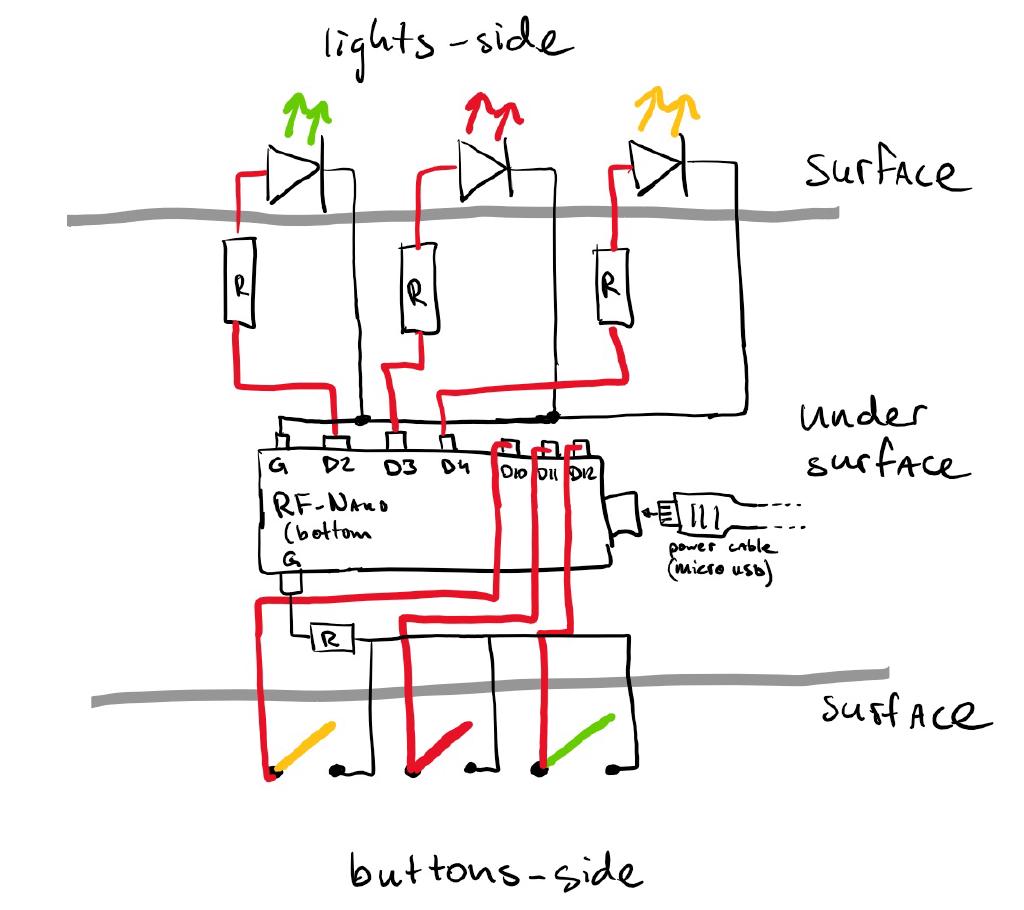 lights-side
surface
R
R
R
under
surface
G D2 D3 D4 D10 D11 D12
RF-Nano
(bottom
G
power cable
(micro usb)
R
surface
buttons-side